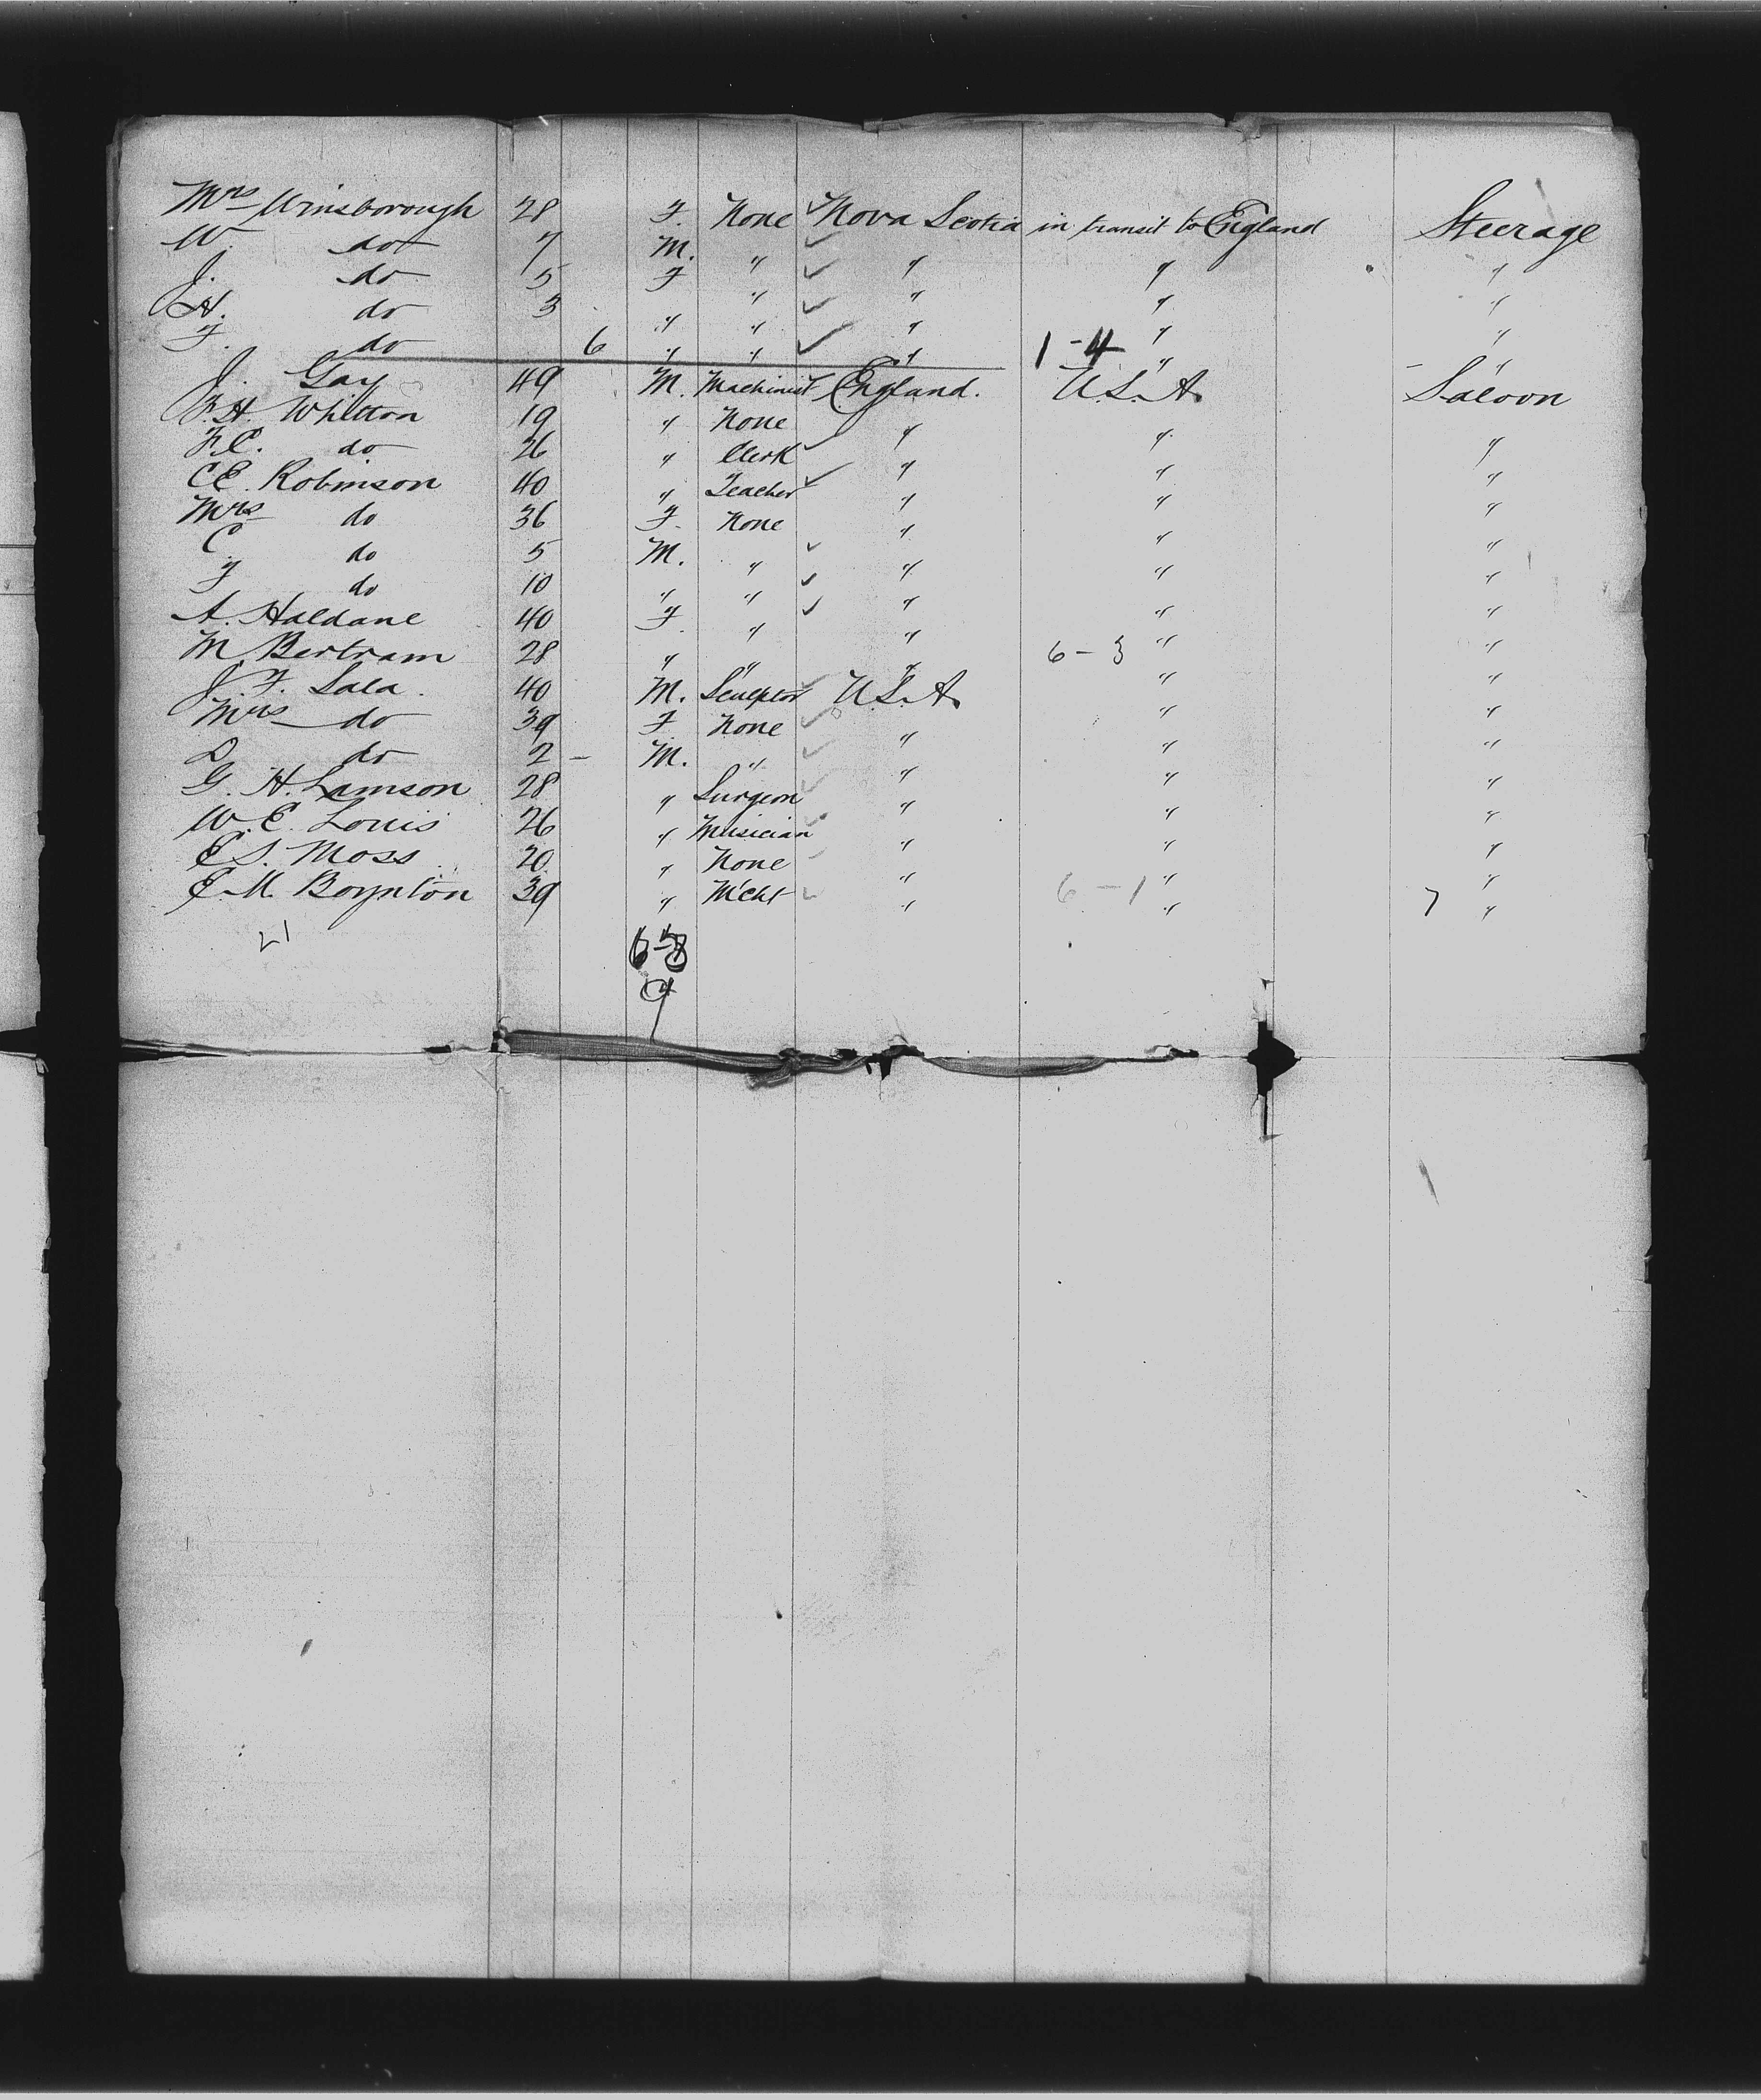 Mrs Winsborough 28 F. None Nova Scotia in transit to England Steerage
W. do 7 M. " " " "
J. do 5 F " " " "
H. do 3 " " " " "
F. do 6 " " " 1-4 " "
J. Gay 49 M. Machinist England. U.S.A. Saloon
F.H. Whitton 19 " None " " "
F.C. do 26 " Clerk " " "
C.E. Robinson 40 " Teacher " " "
Mrs do 36 F. None " " "
C. do 5 M. " " " "
F do 10 " " " " "
A. Haldane 40 F. " " " "
M Bertram 28 " " " 6-3 " "
J. F. Sala. 40 M. Sculptor U.S.A. " "
Mrs do 39 F. None " " "
D do 2 - M. " " " "
G. H. Lamson 28 " Surgeon " " "
W. E. Louis 26 " Musician " " "
E S. Moss 20 " None " " "
E. M. Boynton 39 " Mcht " 6-1 " 7 "
21